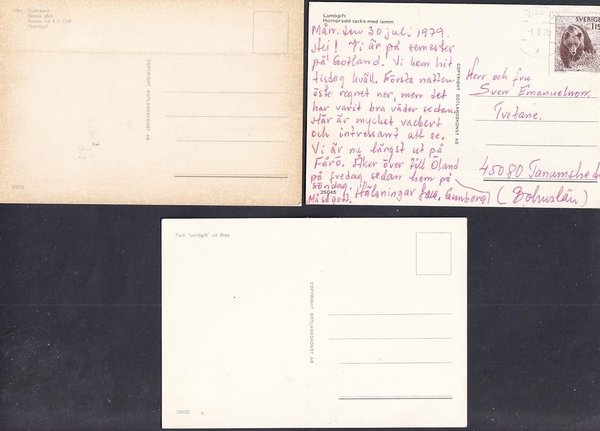 Fårö
COPYRIGHT GOTLANDSKONST AB
Lambgift
Hornprydd tacka med lamm
SVERIGE
115
Mån. den 30 juli 1979.
Hej! Vi är på semester
på Gotland. Vi kom hit
tisdag kväll. Första natten
öste regnet ner, men det
har varit bra väder sedan.
Här är mycket vackert
och intressant att se.
Vi är nu längst ut på
Fårö. Åker över till Öland
på fredag sedan hem på
söndag.
Hälsningar Gunberg
25046
COPYRIGHT GOTLANDSKONST AB
Herr och fru
Sven Emanuelsson.
Tvetane.
45080 Tanumshede
(Bohuslän)
Foto: "Lambgift" vid Broa
COPYRIGHT GOTLANDSKONST AB